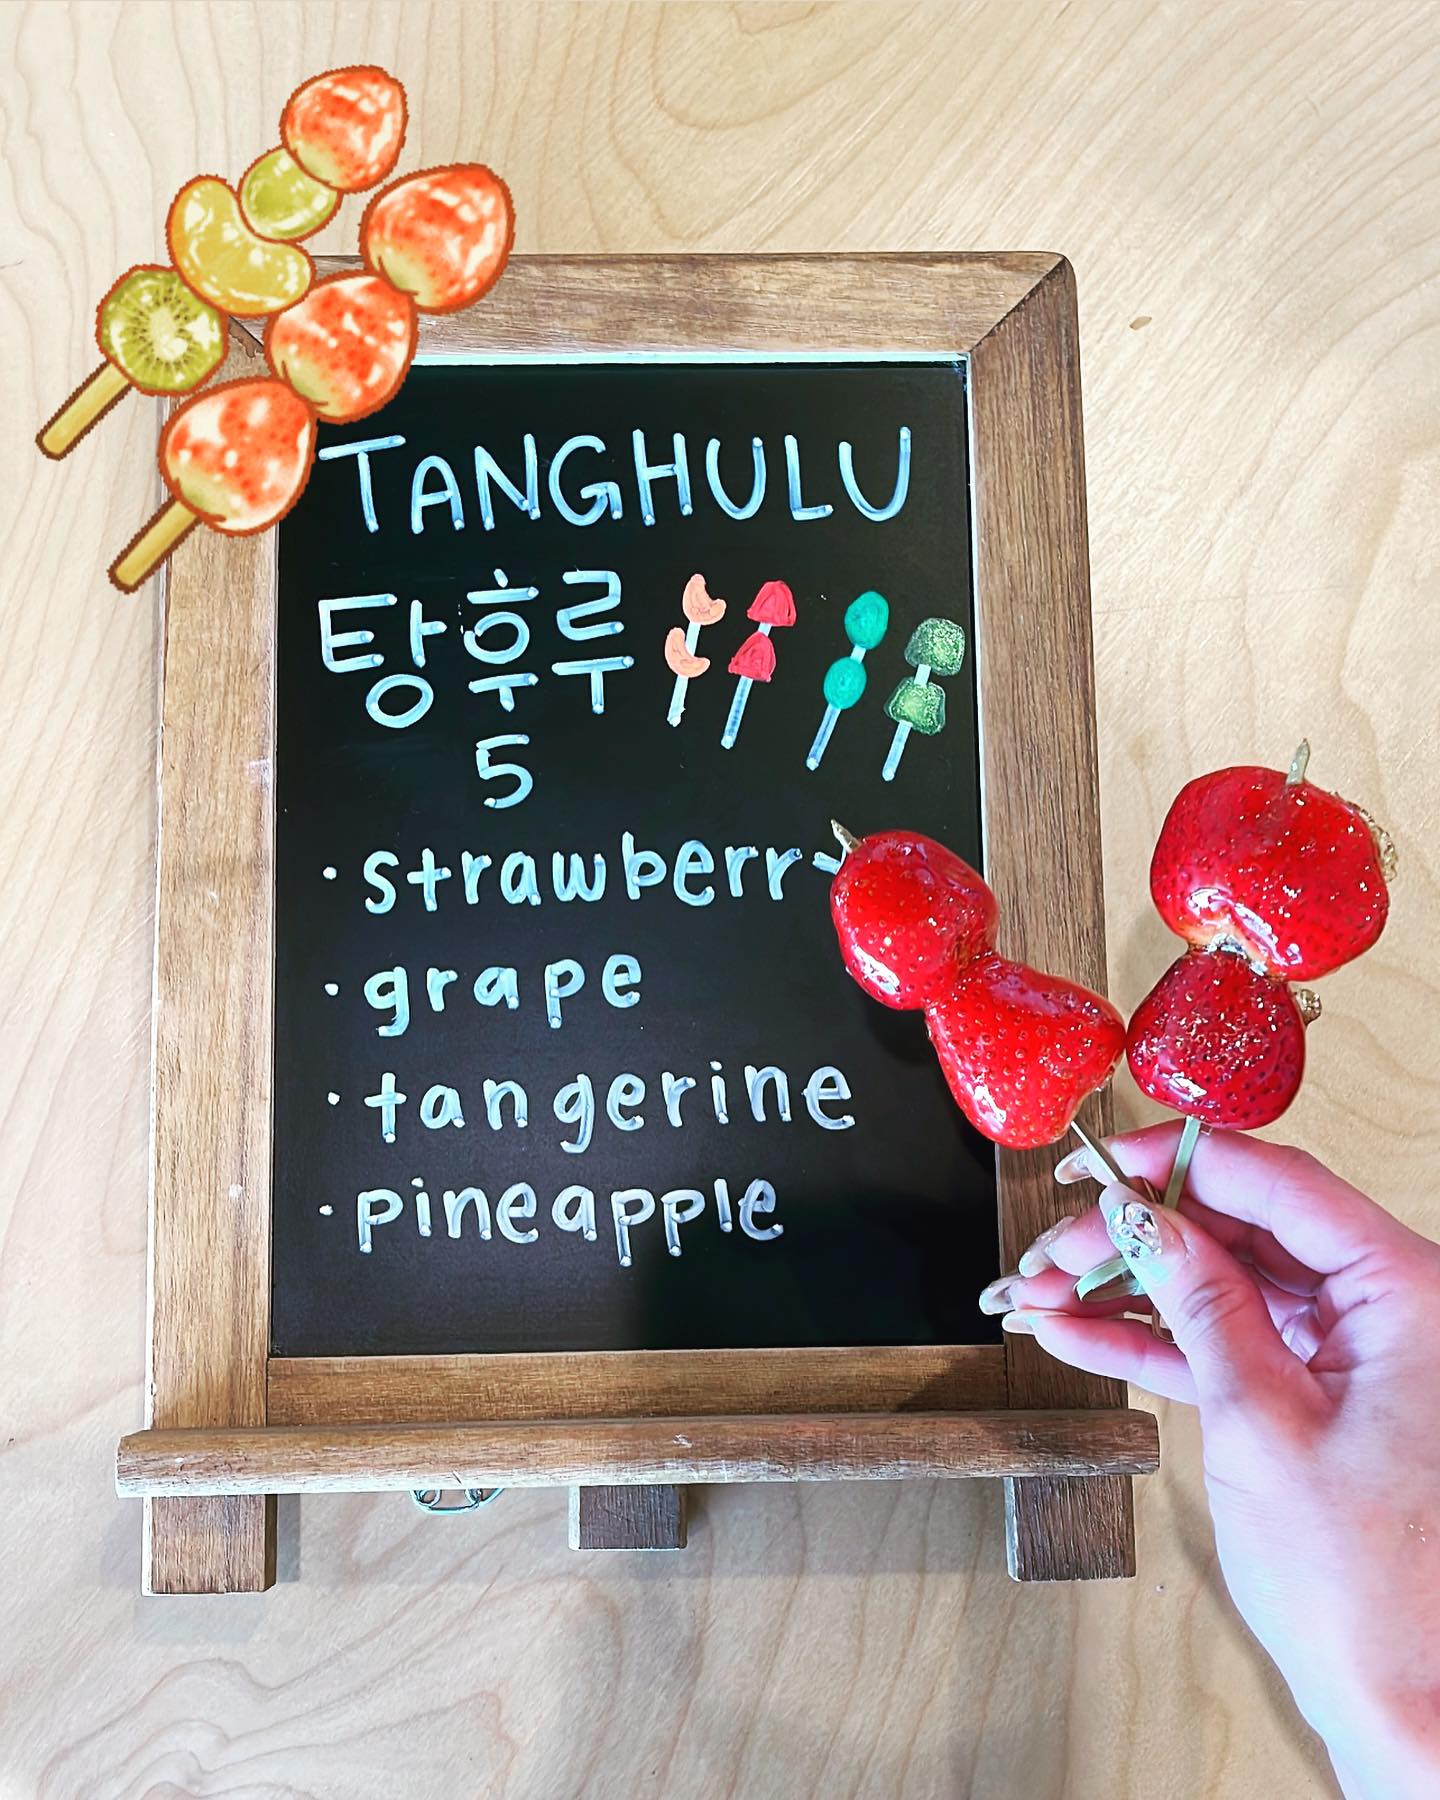 TANGHULU
탕후루
5
· strawberry
· grape
· tangerine
· pineapple